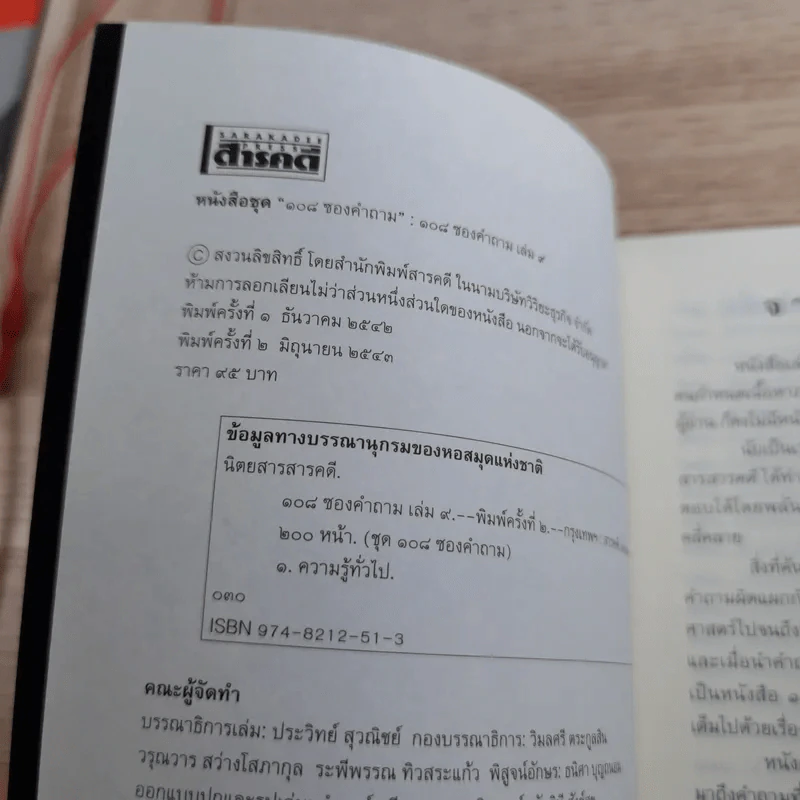 SARAKADEE
PRESS
สารคดี
หนังสือชุด "๑๐๘ ซองคำถาม" : ๑๐๘ ซองคำถาม เล่ม ๙
© สงวนลิขสิทธิ์ โดยสำนักพิมพ์สารคดี ในนามบริษัทวิริยะธุรกิจ จำกัด
ห้ามการลอกเลียนไม่ว่าส่วนหนึ่งส่วนใดของหนังสือ นอกจากจะได้รับอนุญาต
พิมพ์ครั้งที่ ๑ ธันวาคม ๒๕๔๒
พิมพ์ครั้งที่ ๒ มิถุนายน ๒๕๔๓
ราคา ๙๕ บาท
ข้อมูลทางบรรณานุกรมของหอสมุดแห่งชาติ
นิตยสารสารคดี.
๑๐๘ ซองคำถาม เล่ม ๙.--พิมพ์ครั้งที่ ๒.--กรุงเทพฯ
๒๐๐ หน้า. (ชุด ๑๐๘ ซองคำถาม)
๑. ความรู้ทั่วไป.
๐๓๐
ISBN 974-8212-51-3
คณะผู้จัดทำ
บรรณาธิการเล่ม: ประวิทย์ สุวณิชย์ กองบรรณาธิการ: วิมลศรี ตระกูลสิน
วรุณวาร สว่างโสภากุล ระพีพรรณ ทิวสระแก้ว พิสูจน์อักษร: ธนิศา
หนังสือ
ผู้อ่าน
นับเป็น
สารสารคดี
ตอบได้โดย
คลี่คลาย
สิ่งที่ค้น
คำถามผิดแผก
ศาสตร์ไปจนถึง
และเมื่อนำ
เป็นหนังสือ
เต็มไปด้วยเรื่อง
มาถึงคำถามที่